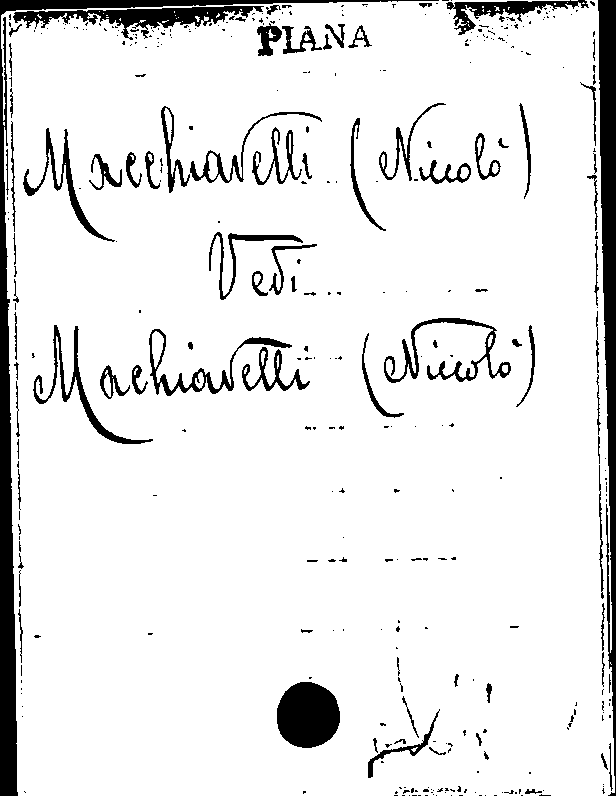 PIANA
Macchiavelli (Niccolò)
Vedi
Machiavelli (Niccolò)